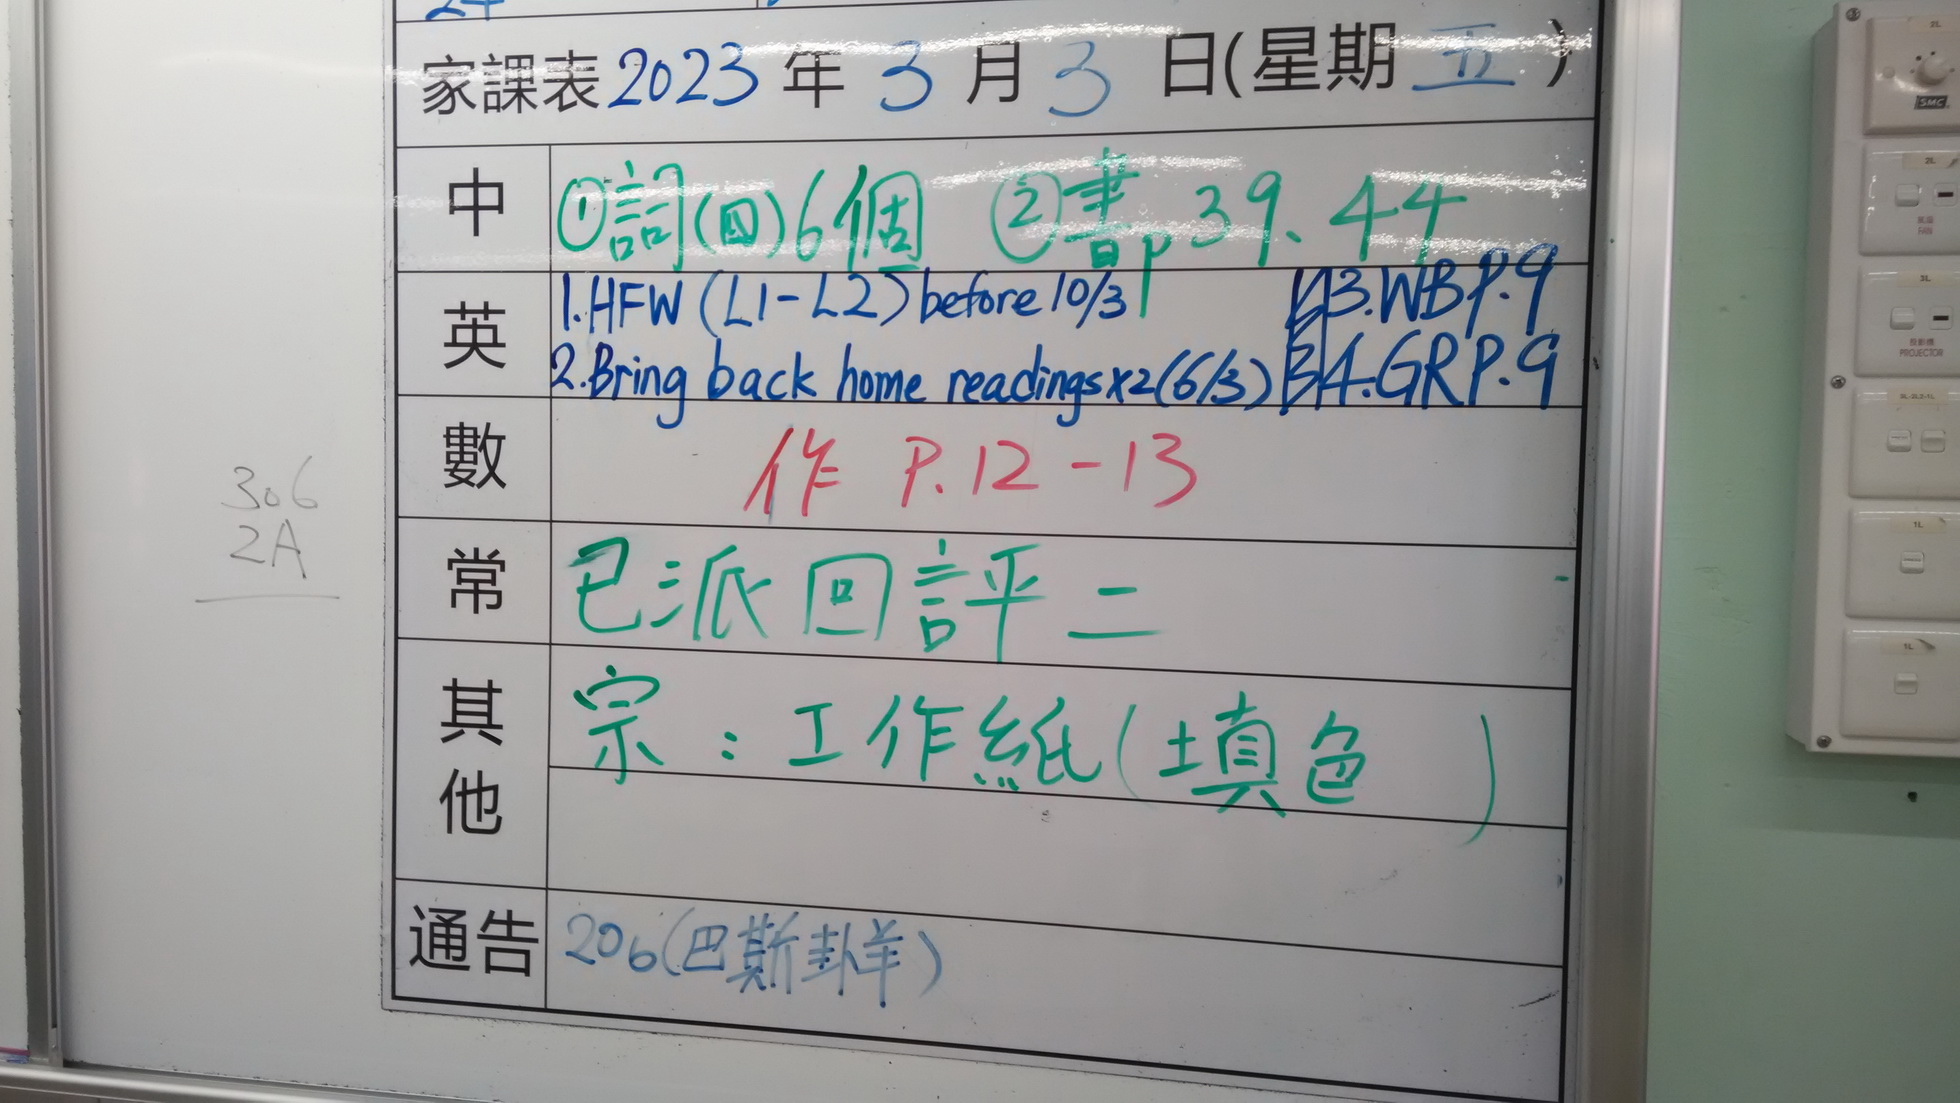 24
家課表 2023 年 3 月 3 日(星期 五 )
中 ①詞(四)6個 ②書p39、44
英 1.HFW (L1-L2) before 10/3 3.WB P.9
2.Bring back home readings x2 (6/3) 4.GR P.9
數 作 P.12-13
306
2A
常 已派回評二
其他 宗：工作紙(填色 )
通告 206(巴斯卦羊)
2L
SMC
2L
氣扇
FAN
3L
投影機
PROJECTOR
1L
1L